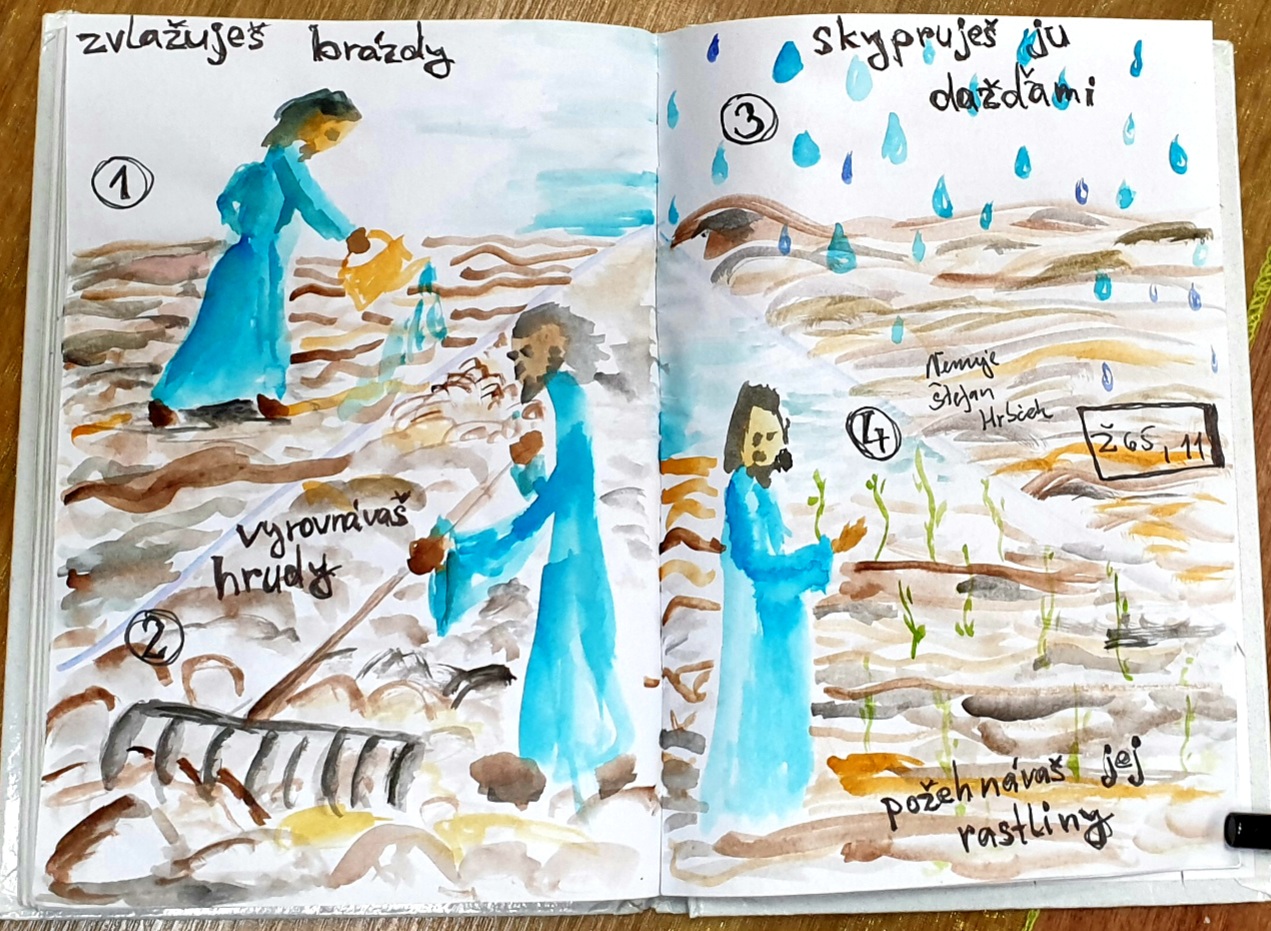 zvlažuješ brázdy
1
vyrovnávaš
hrudy
2
skypruješ ju
dažďami
3
4
Štefan
Ž 65, 11
požehnávaš jej
rastliny